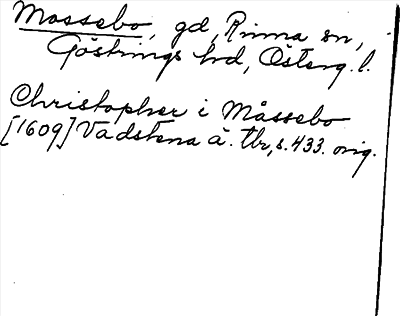 Mossebo, gd, Rinna sn,
Göstrings hd, Österg. l.
Christopher i Måssebo
[1609] Vadstena ä. tbr, s. 433. orig.